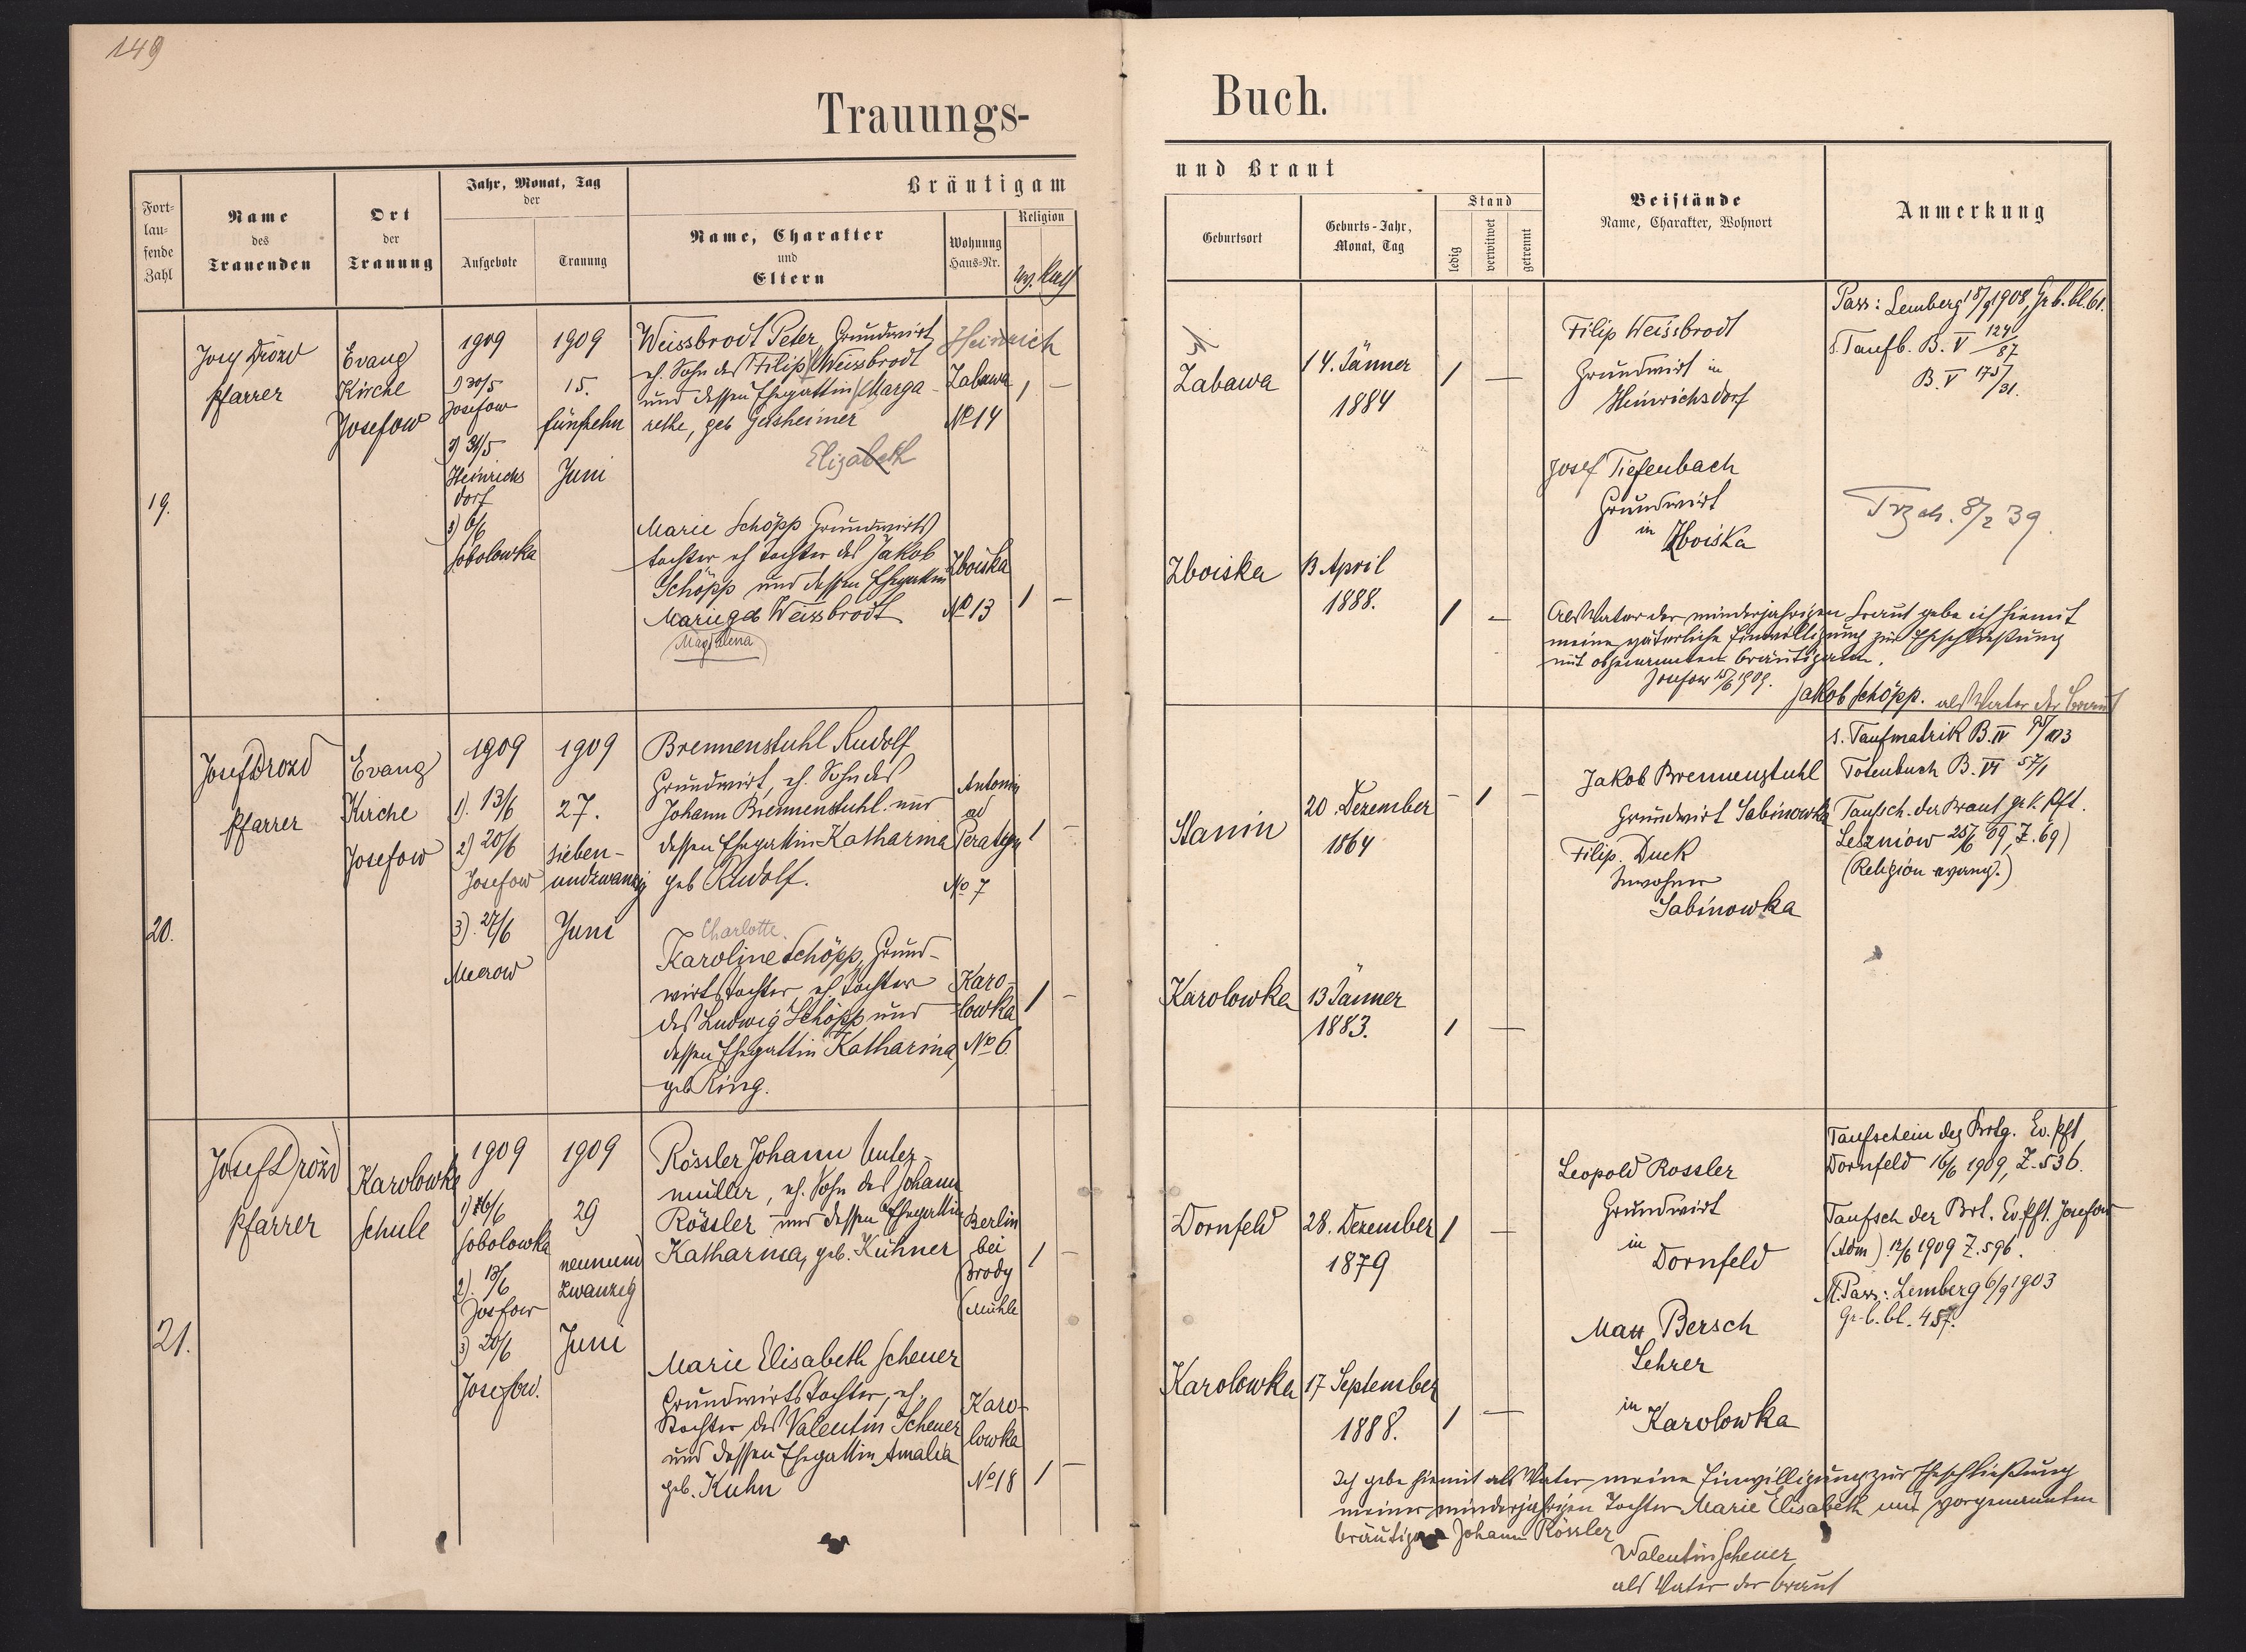 149
Trauungs-
Buch.
Fort-
lau-
fende
Zahl
Name
des
Trauenden
Ort
der
Trauung
Jahr, Monat, Tag
der
Aufgebote
Trauung
Bräutigam
Name, Charakter
und
Eltern
Wohnung
Haus-Nr.
Religion
und Braut
Geburtsort
Geburts-Jahr,
Monat, Tag
Stand
ledig
verwitwet
getrennt
Beistände
Name, Charakter, Wohnort
Anmerkung
19.
Josef Drozd
Pfarrer
Evang
Kirche
Josefow
1909
1) 30/5
Josefow
2) 31/5
Heinrichs
dorf
3) 6/6
Sobolowka
1909
15.
fünfzehn
Juni
Weissbrodt Peter, Grundwirt
eh. Sohn des Filip Weissbrodt
und dessen Ehegattin Marga-
rethe, geb
Elizabeth
Heinrich
Zabawa
No 14
1 —
Marie Schöpp Grundwirts
tochter eh Tochter des Jakob
Schöpp und dessen Ehegattin
Marie geb Weissbrodt
Magdalena
Zboiska
No 13
1 —
Zabawa
14. Jänner
1884
1 —
Zboiska
13 April
1888.
1 —
Filip Weissbrodt
Grundwirt in
Heinrichsdorf
Josef Tiefenbach
Grundwirt
in Zboiska
Pass: Lemberg 18/9 1908, Gr. b. bl. 61.
s. Taufb. B. V 124/87
B. V 175/31.
8/2 39.
Als Vater der minderjährigen Braut gebe ich hiemit
meine väterliche Einwilligung zur Eheschließung
mit obgenannten Bräutigam.
Josefow 15/6 1909.
Jakob Schöpp. als Vater der Braut
20.
Josef Drozd
Pfarrer
Evang
Kirche
Josefow
1909
1). 13/6
2) 20/6
Josefow
3). 27/6
Mierow
1909
27.
sieben-
undzwanzig
Juni
Brennenstuhl Rudolf
Grundwirt, eh. Sohn des
Johann Brennenstuhl und
dessen Ehegattin Katharina
geb Rudolf.
Antonin
ad
Peratyn
No 7
1 —
Charlotte.
Karoline Schöpp, Grund-
wirtstochter eh Tochter
des Ludwig Schöpp und
dessen Ehegattin Katharina
geb Ring.
Karo-
lowka
No 6.
1 —
Stanin
20. Dezember
1864
— 1 —
Karolowka
13 Jänner
1883.
1 —
Jakob Brennenstuhl
Grundwirt Sabinowka
Filip Duck
Inwohner
Sabinowka
s. Taufmatrik B. IV 95/113
Totenbuch B. VI 57/1
Taufsch. der Braut gr. k. Pft.
Leszniow 25/6 09, Z. 69)
(Religion evang.)
21.
Josef Drozd
Pfarrer
Karolowka
Schule
1909
1) 6/6
Sobolowka
2). 13/6
Josfow
3) 20/6
Josefow.
1909
29
neunund
zwanzig
Juni
Rössler Johann
müller, eh. Sohn des Johann
Rössler und dessen Ehegattin
Katharina, geb. Kühner
Berlin
bei
Brody
(Mühle
1 —
Marie Elisabeth Scheuer
Grundwirtstochter, eh.
Tochter des Valentin Scheuer
und dessen Ehegattin Amalia
geb. Kuhn
Karo-
lowka
No 18
1 —
Dornfeld
28. Dezember
1879
1 —
Karolowka
17 September
1888.
1 —
Leopold Rossler
Grundwirt
in
Dornfeld
Max Bersch
Lehrer
in
Karolowka
Taufschein des Brtg. Ev. Pft
Dornfeld 16/6 1909, Z. 536.
Taufsch der Brt. Ev. Pft. Josefow
(Adm) 12/6 1909 Z. 596.
M. Pass: Lemberg 6/9 1903
Gr-b. bl. 457.
Ich gebe hiemit als Vater meine Einwilligung zur Eheschließung
meiner minderjährigen Tochter Marie Elisabeth mit vorgenannten
Bräutigam Johann Rössler
Valentin Scheuer
als Vater der Braut